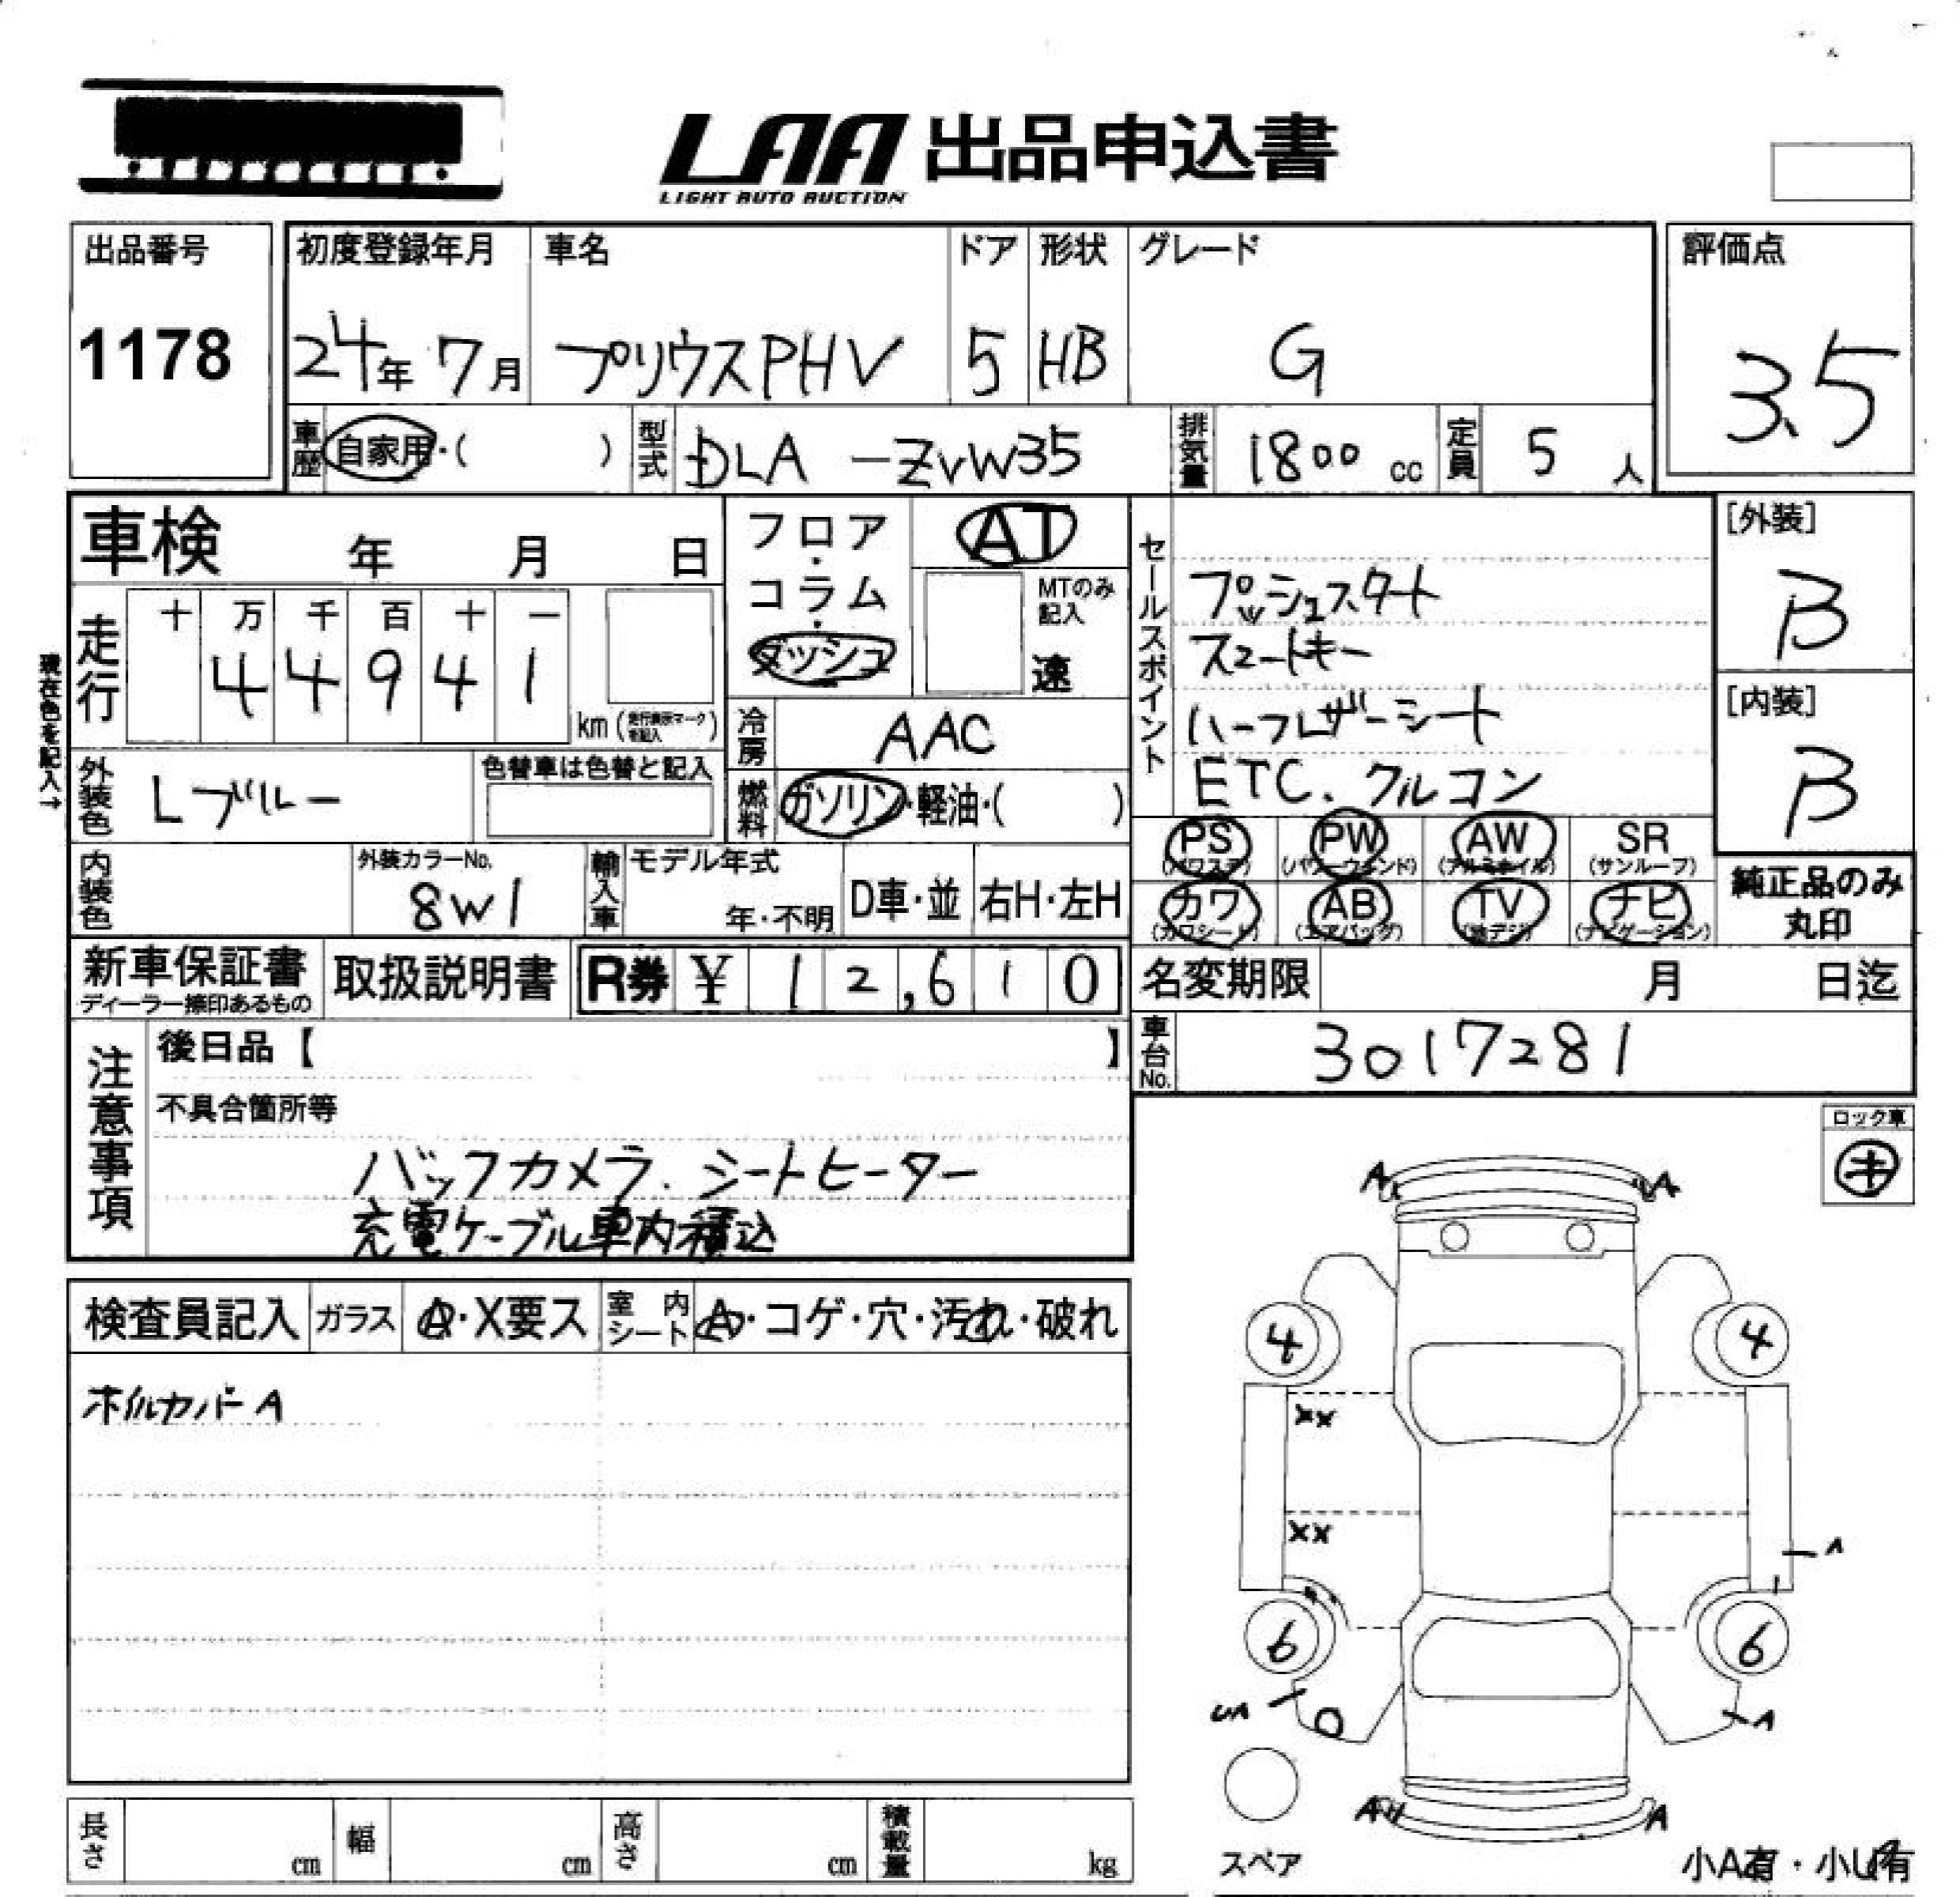 LAA 出品申込書
LIGHT AUTO AUCTION
出品番号
1178
初度登録年月
24年 7月
車名
プリウスPHV
ドア
5
形状
HB
グレード
G
評価点
3.5
車歴 自家用・( )
型式 DLA -ZVW35
排気量 1800 cc
定員 5 人
車検 年 月 日
フロア・コラム・ダッシュ
AT
MTのみ記入
速
走行
十 万 千 百 十 一
4 4 9 4 1
km (走行表示マークを記入)
現在色を記入→
冷房 AAC
外装色 Lブルー
色替車は色替と記入
燃料 ガソリン・軽油・( )
内装色
外装カラーNo.
8W1
輸入車
モデル年式
年・不明
D車・並
右H・左H
セールスポイント
プッシュスタート
スマートキー
ハーフレザーシート
ETC. クルコン
[外装]
B
[内装]
B
PS (パワステ)
PW (パワーウィンド)
AW (アルミホイル)
SR (サンルーフ)
カワ (カワシート)
AB (エアバッグ)
TV (地デジ)
ナビ (ナビゲーション)
純正品のみ丸印
新車保証書
ディーラー捺印あるもの
取扱説明書
R券 ¥ 12,610
名変期限 月 日迄
車台No. 3017281
注意事項
後日品【 】
不具合箇所等
バックカメラ. シートヒーター
充電ケーブル車内積込
ロック車
キ
検査員記入
ガラス A・X要ス
室内シート A・コゲ・穴・汚れ・破れ
ホイルカバーA
A A
4 4
XX
XX
A
6 6
A
A A
スペア
小A有・小U有
長さ cm
幅 cm
高さ cm
積載量 kg